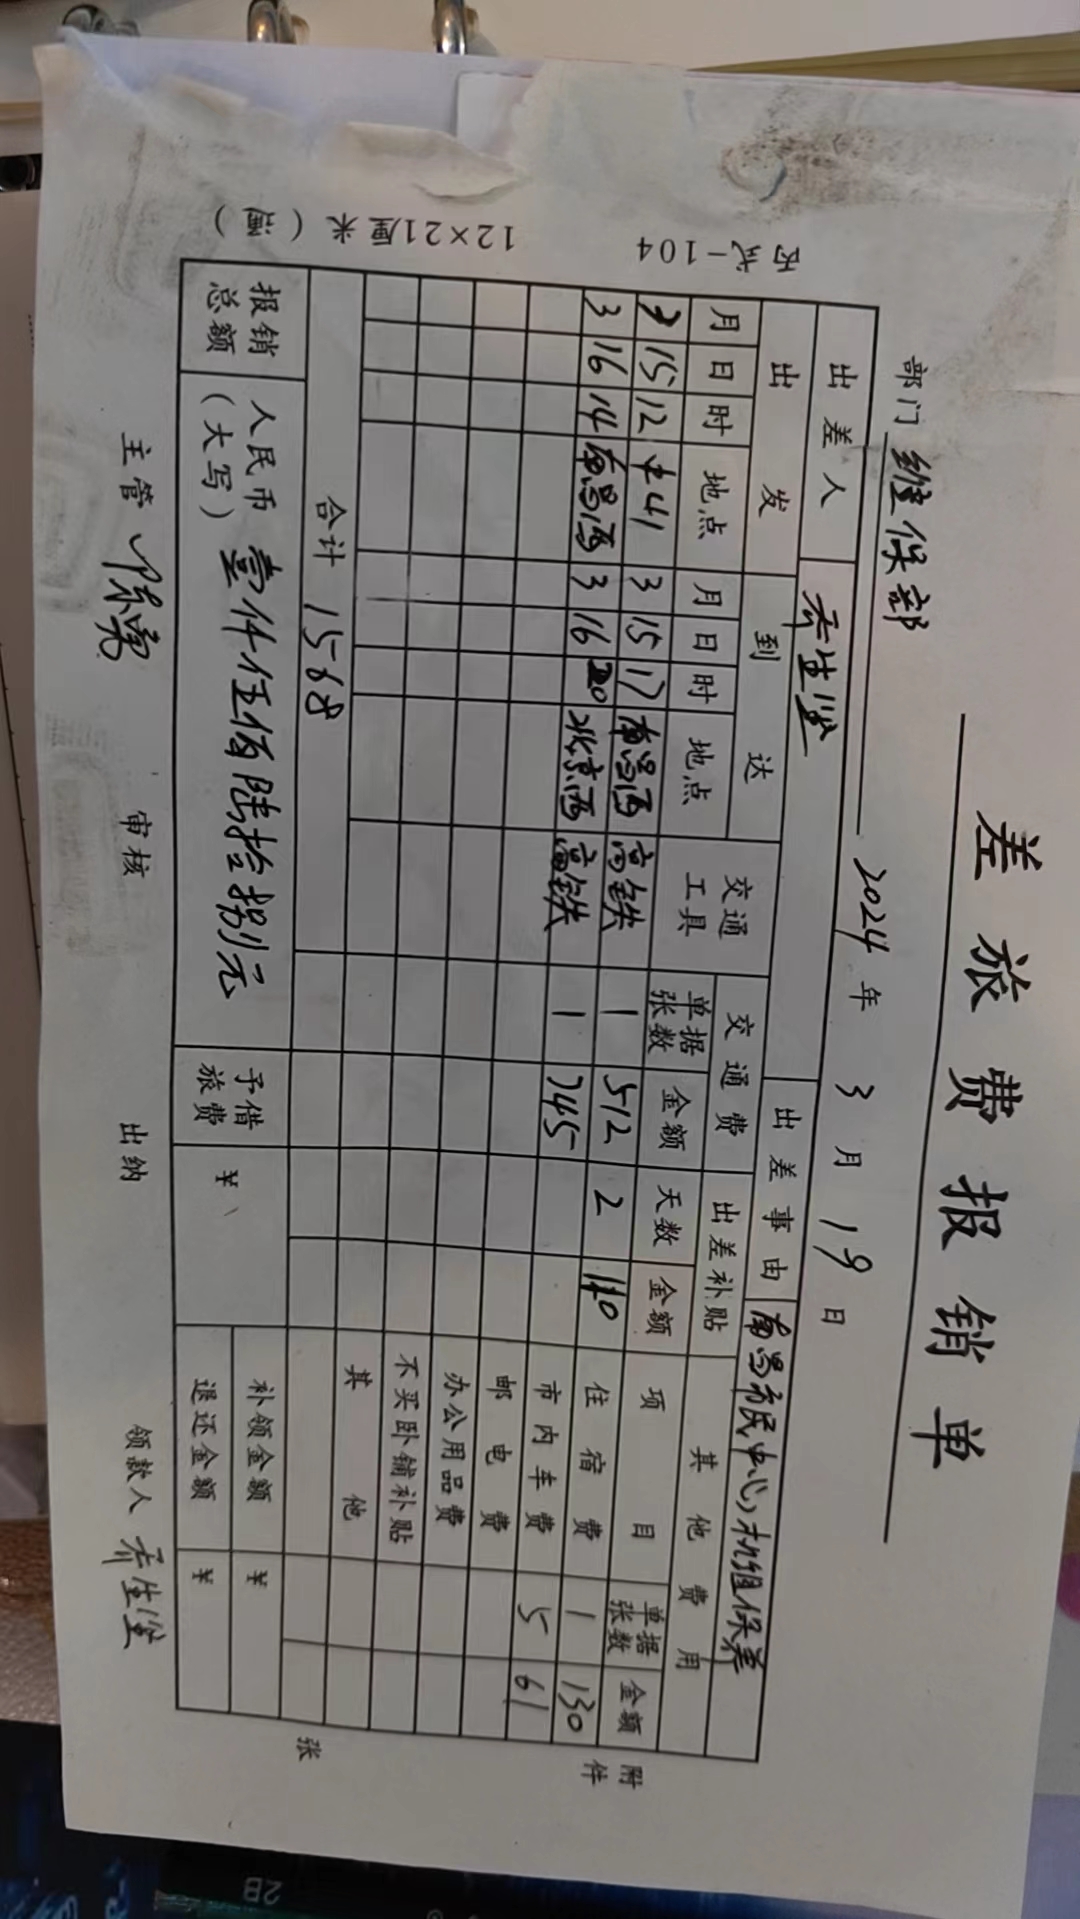 差旅费报销单
部门 维保部 2024年3月19日
出差人 乔生堂 出差事由 南昌市民中心机组保养
出发 到达 交通工具 交通费 出差补贴 其他费用
月 日 时 地点 月 日 时 地点 单据张数 金额 天数 金额 项目 单据张数 金额
3 15 12 中山 3 15 17 南昌西 高铁 1 512 2 住宿费 1 130
3 16 14 南昌西 3 16 20 北京西 高铁 1 745 市内车费 5 61
邮电费
办公用品费
不买卧铺补贴
其他
合计 1568
报销总额 人民币(大写) 壹仟伍佰陆拾捌元 予借旅费 ¥ 补领金额 ¥
退还金额 ¥
主管 审核 出纳 领款人 乔生堂
附件 张
丙式-104 12×21厘米(薄)
2B